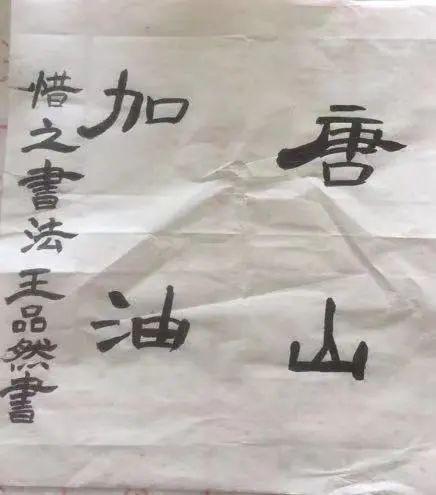 唐山
加油
惜之書法王品然書